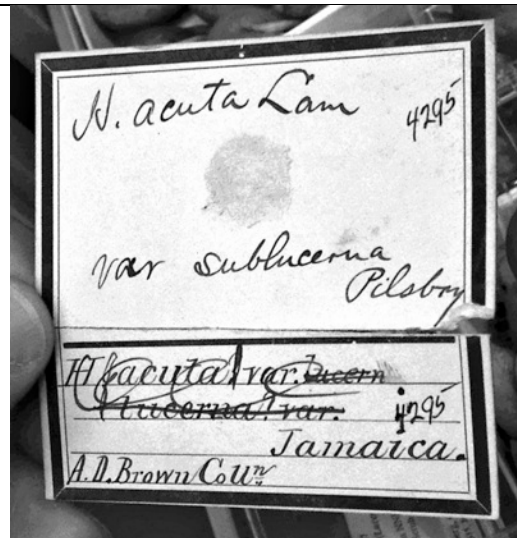 H. acuta Lam
4295
var sublucerna
Pilsbry
H (acuta) var. lucern
lucerna! var.
4295
Jamaica.
A.D. Brown Colln